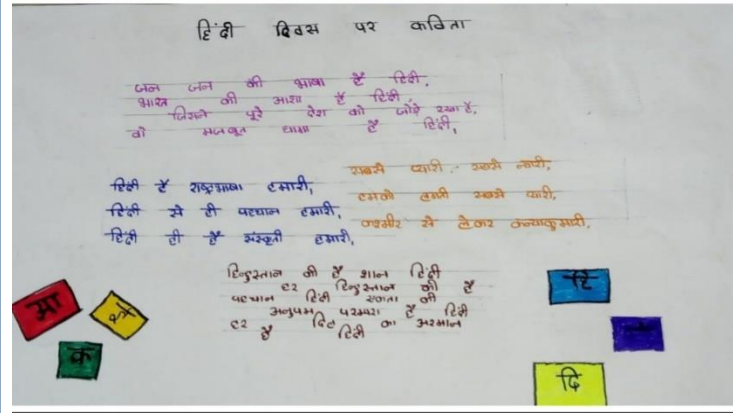 हिंदी दिवस पर कविता
जन जन की भाषा है हिंदी,
भारत की आशा है हिंदी,
जिसने पूरे देश को जोड़े रखा है,
वो मजबूत धागा है हिंदी,
हिंदी है राष्ट्रभाषा हमारी,
हिंदी से ही पहचान हमारी,
हिंदी ही है संस्कृती हमारी,
सबसे प्यारी, सबसे न्यारी,
हमको लगती सबसे प्यारी,
कश्मीर से लेकर कन्याकुमारी,
हिन्दुस्तान की है शान हिंदी
हर हिन्दुस्तान की है
पहचान हिंदी एकता की
अनुपम परम्परा है हिंदी
हर दिल का अरमान
है हिंदी
मा
क
हि
दि